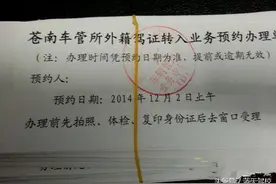 苍南车管所外籍驾证转入业务预约办理单
(注:办理时间凭预约日期为准,提前或逾期无效)
预约人:
预约日期:2014年12月2日上午
办理前先拍照、体检、复印身份证后去窗口受理